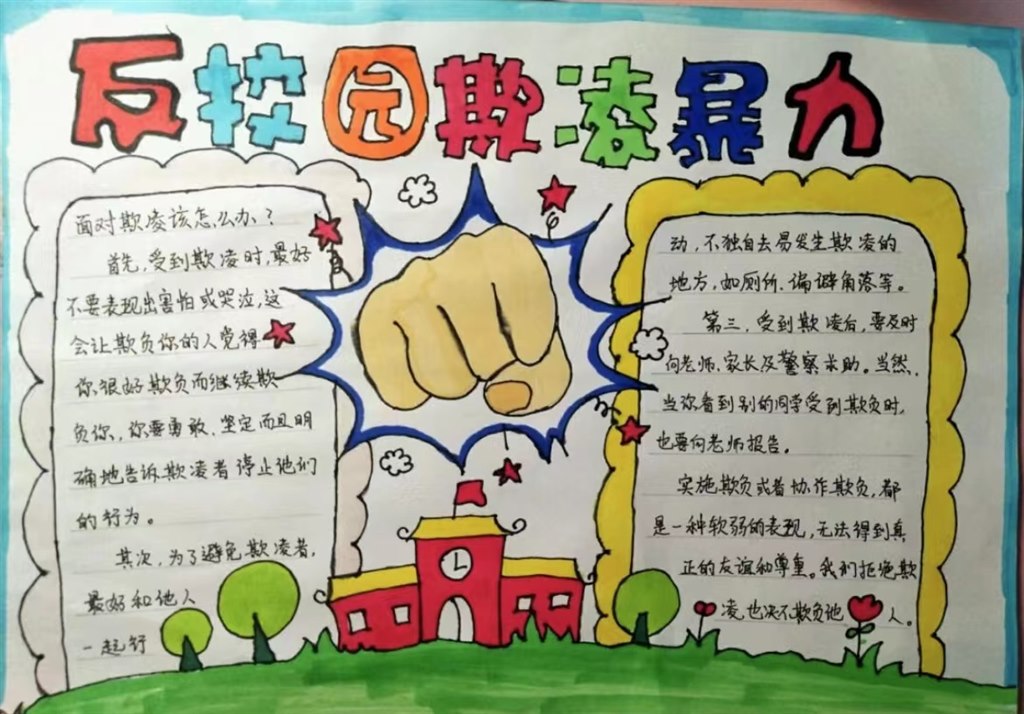 反校园欺凌暴力
面对欺凌该怎么办？
首先，受到欺凌时，最好
不要表现出害怕或哭泣，这
会让欺负你的人觉得
你很好欺负而继续欺
负你，你要勇敢、坚定而且明
确地告诉欺凌者停止他们
的行为。
其次，为了避免欺凌者，
最好和他人
一起行
动，不独自去易发生欺凌的
地方，如厕所、偏僻角落等。
第三，受到欺凌后，要及时
向老师、家长及警察求助。当然，
当你看到别的同学受到欺负时，
也要向老师报告。
实施欺负或者协作欺负，都
是一种软弱的表现，无法得到真
正的友谊和尊重。我们拒绝欺
凌，也决不欺负他人。